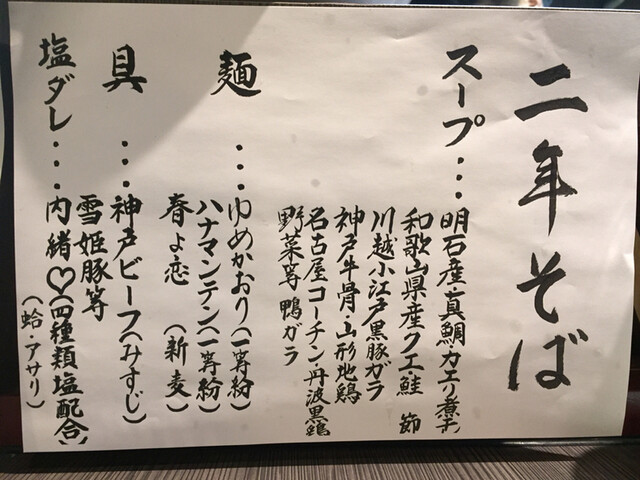 二年そば
スープ…明石産・真鯛カエリ煮干
和歌山県産クエ・鮭 節
川越小江戸黒豚ガラ
神戸牛骨・山形地鶏
名古屋コーチン・丹波黒鶏
野菜等 鴨ガラ
麺 …ゆめかおり(一等粉)
ハナマンテン(一等粉)
春よ恋 (新麦)
具 …神戸ビーフ(みすじ)
雪姫豚等
塩ダレ…内緒♡(四種類塩配合)
(蛤・アサリ)